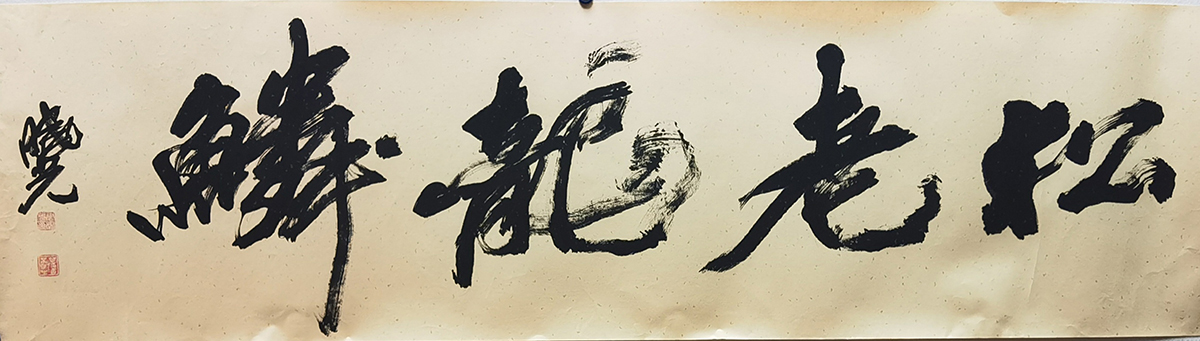 松老龍鱗
曉